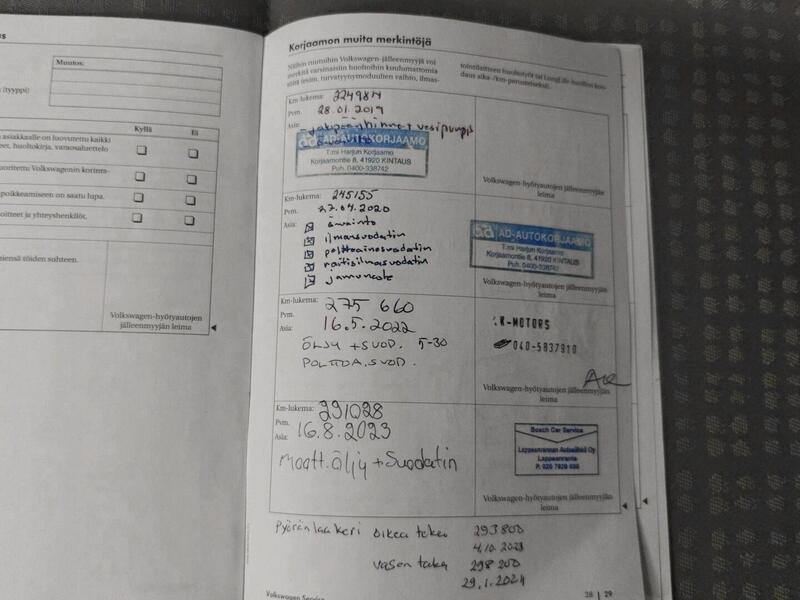 Muutos:
(tyyppi)
Kyllä Ei
asiakkaalle on luovutettu kaikki
eet, huoltokirja, varaosaluettelo
poikkeamiseen on saatu lupa.
oitteet ja yhteyshenkilöt.
töiden suhteen.
Volkswagen-hyötyautojen
jälleenmyyjän leima
Korjaamon muita merkintöjä
Näihin ruutuihin Volkswagen-jälleenmyyjä voi
merkitä varsinaisiin huoltoihin kuulumattomia
Km-lukema: 224984
Pvm. 28.01.2019
Asia: Jakopäähihna + vesipumppu
AD-AUTOKORJAAMO
T:mi Harjun Korjaamo
Korjaamontie 8, 41920 KINTAUS
Puh. 0400-338742
Volkswagen-hyötyautojen jälleenmyyjän
leima
Km-lukema: 245155
Pvm. 27.04.2020
Asia:
ilmansuodatin
polttoainesuodatin
raitisilmasuodatin
jarruneste
AD-AUTOKORJAAMO
T:mi Harjun Korjaamo
Korjaamontie 8, 41920 KINTAUS
Puh. 0400-338742
Volkswagen-hyötyautojen jälleenmyyjän
leima
Km-lukema: 275 660
Pvm. 16.5.2022
Asia: ÖLJY + SUOD. 5-30
POLTTOA.SUOD.
K-MOTORS
040-5837910
Volkswagen-hyötyautojen jälleenmyyjän
leima
Km-lukema: 291028
Pvm.
Asia: 16.8.2023
Moott.öljy + Suodatin
Bosch Car Service
Lappeenrannan Autosähkö Oy
Lappeenranta
Volkswagen-hyötyautojen jälleenmyyjän
leima
Pyöränlaakeri oikea taka 293800
4.10.2023
vasen taka 298200
29.1.2024
Volkswagen Service
28 | 29